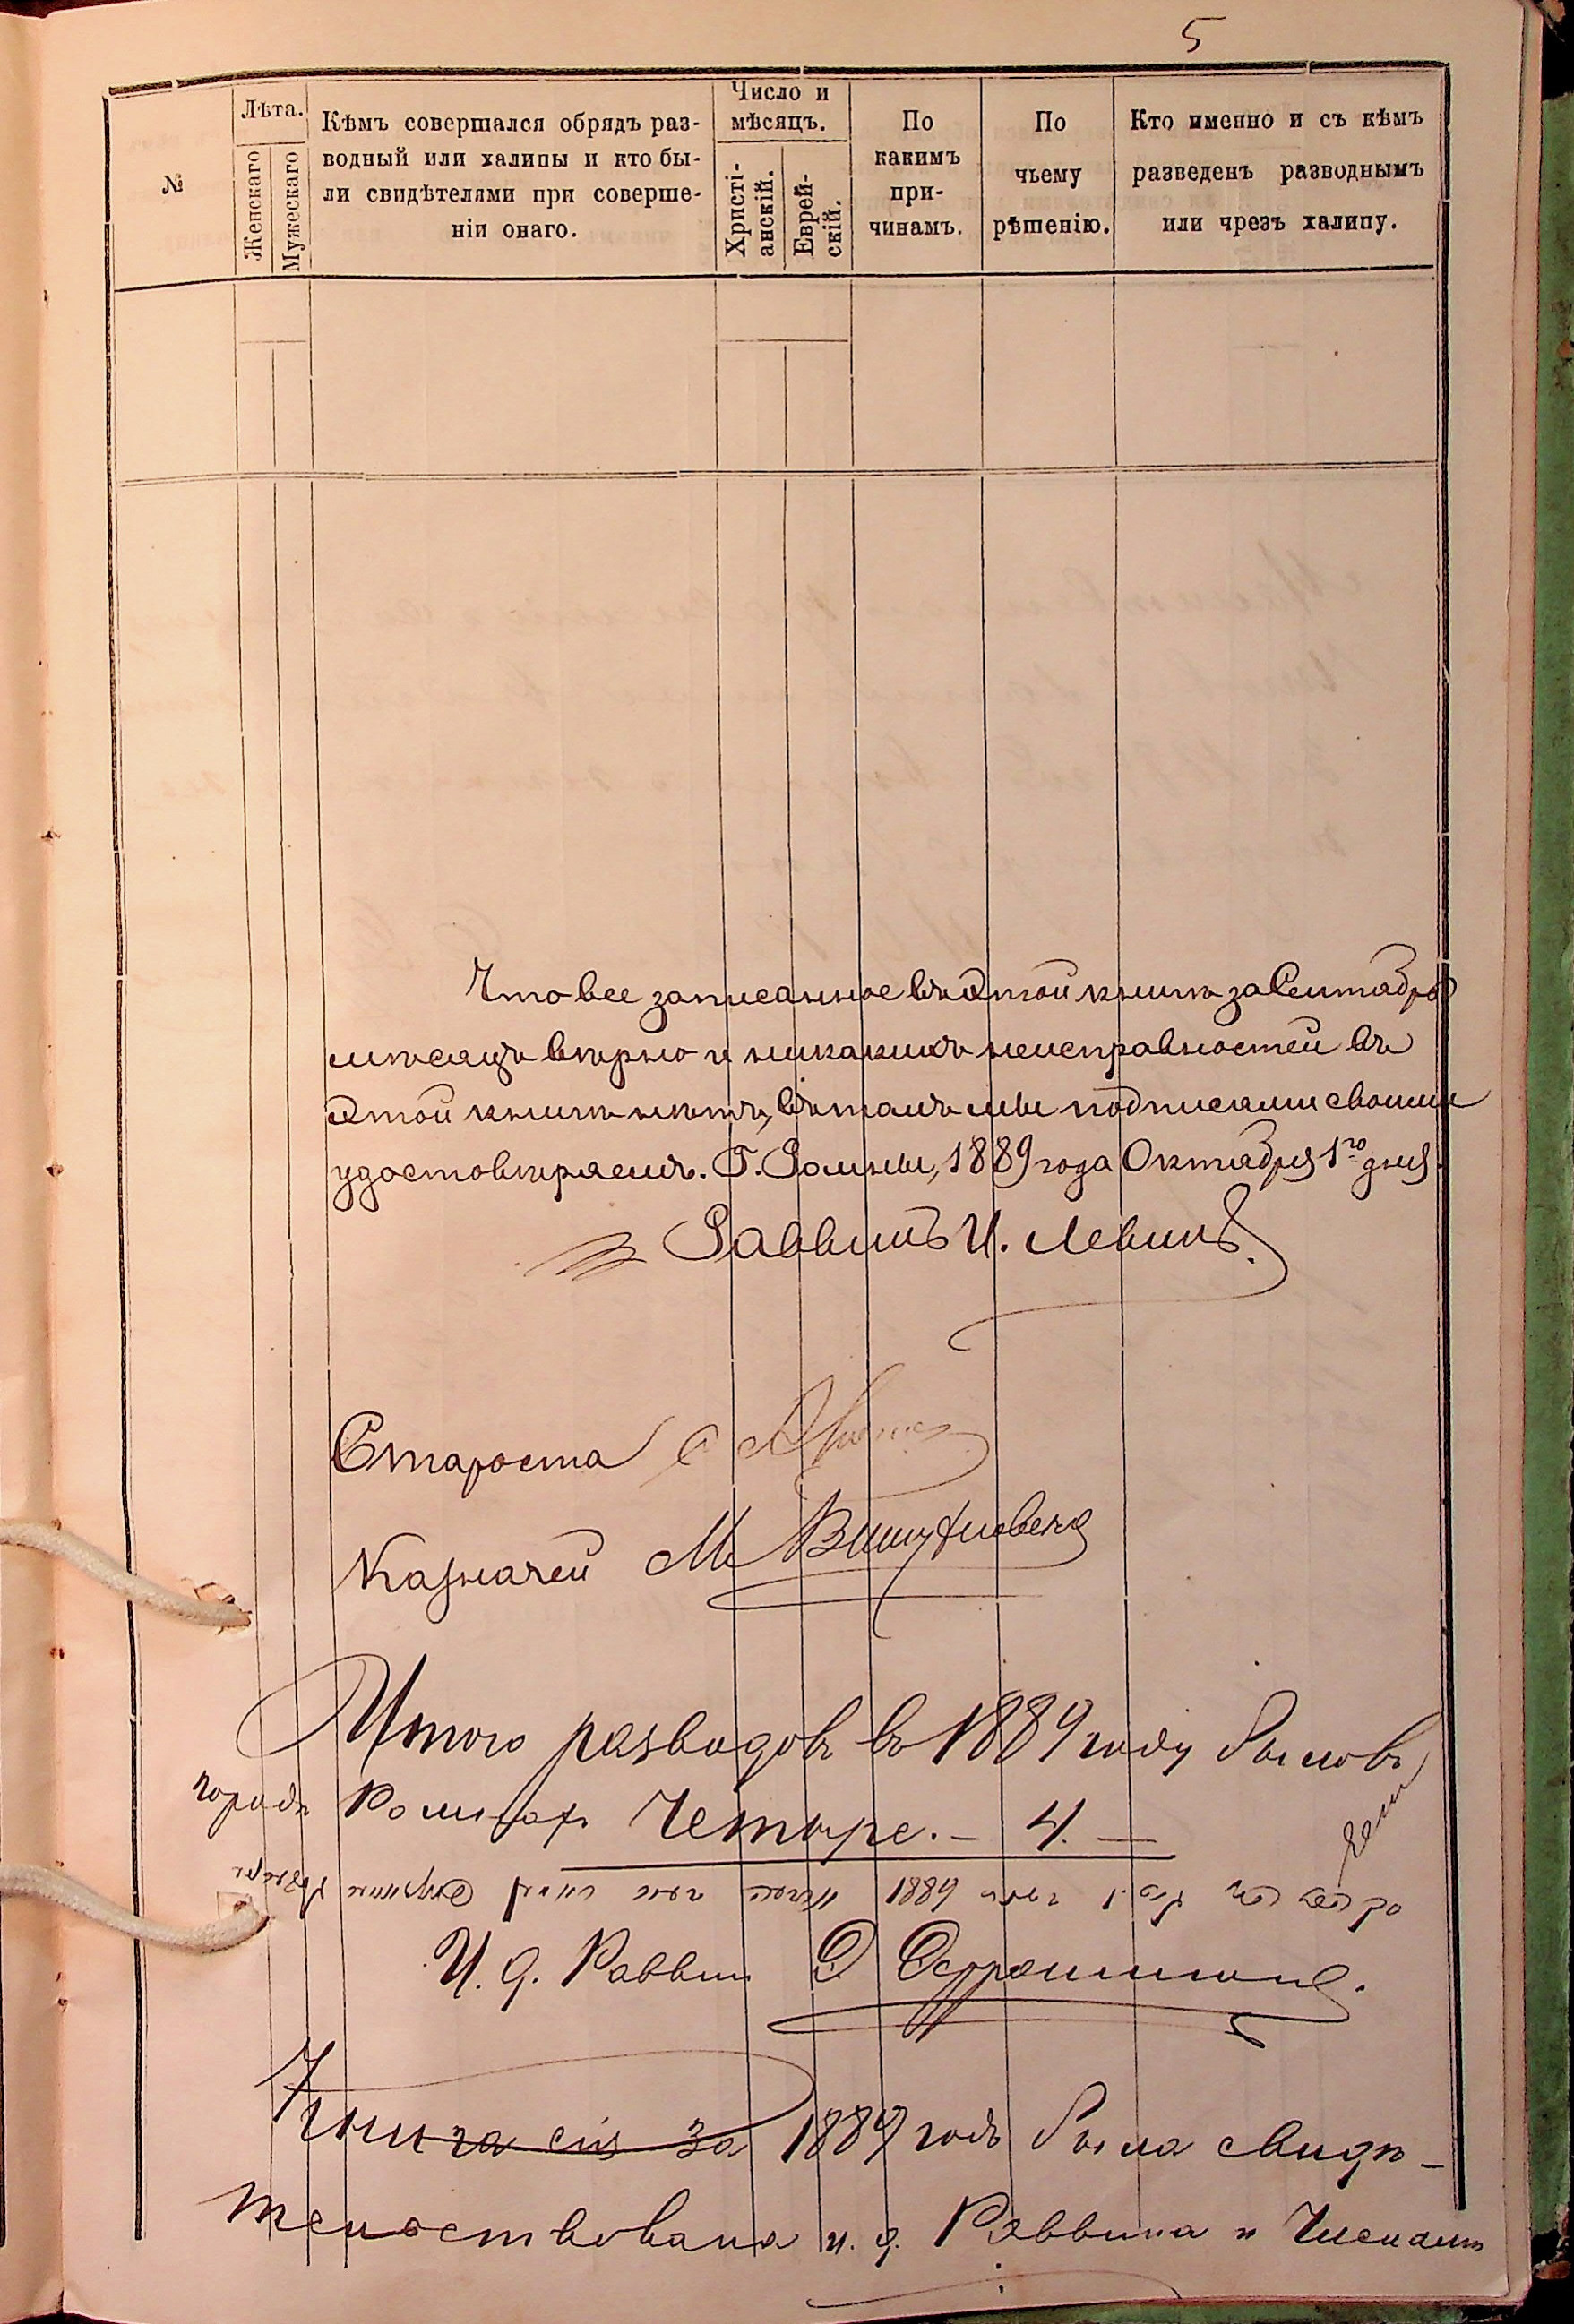 5
№
Лѣта.
Женскаго
Мужескаго
Кѣмъ совершался обрядъ раз-
водный или халицы и кто бы-
ли свидѣтелями при соверше-
нiи онаго.
Число и
мѣсяцъ.
Христi-
анскiй.
Еврей-
скiй.
По
какимъ
при-
чинамъ.
По
чьему
рѣшенiю.
Кто именно и съ кѣмъ
разведенъ разводнымъ
или чрезъ халицу.
Что все записанное въ этой книгѣ за Сентябрь
мѣсяцъ вѣрно и никакихъ неисправностей въ
этой книгѣ нѣтъ, въ томъ мы подписями своими
удостовѣряемъ. Г. Ромны, 1889 года Октября 1го дня.
Раввинъ И. Левинъ.
Староста
Казначей М
Итого разводовъ въ 1889 году было въ
городѣ Ромнахъ Четыре. - 4. —
1889
И. д. Раввин
Книга сія за 1889 годъ была свидѣ-
тельствована и. д. Раввина и Членами